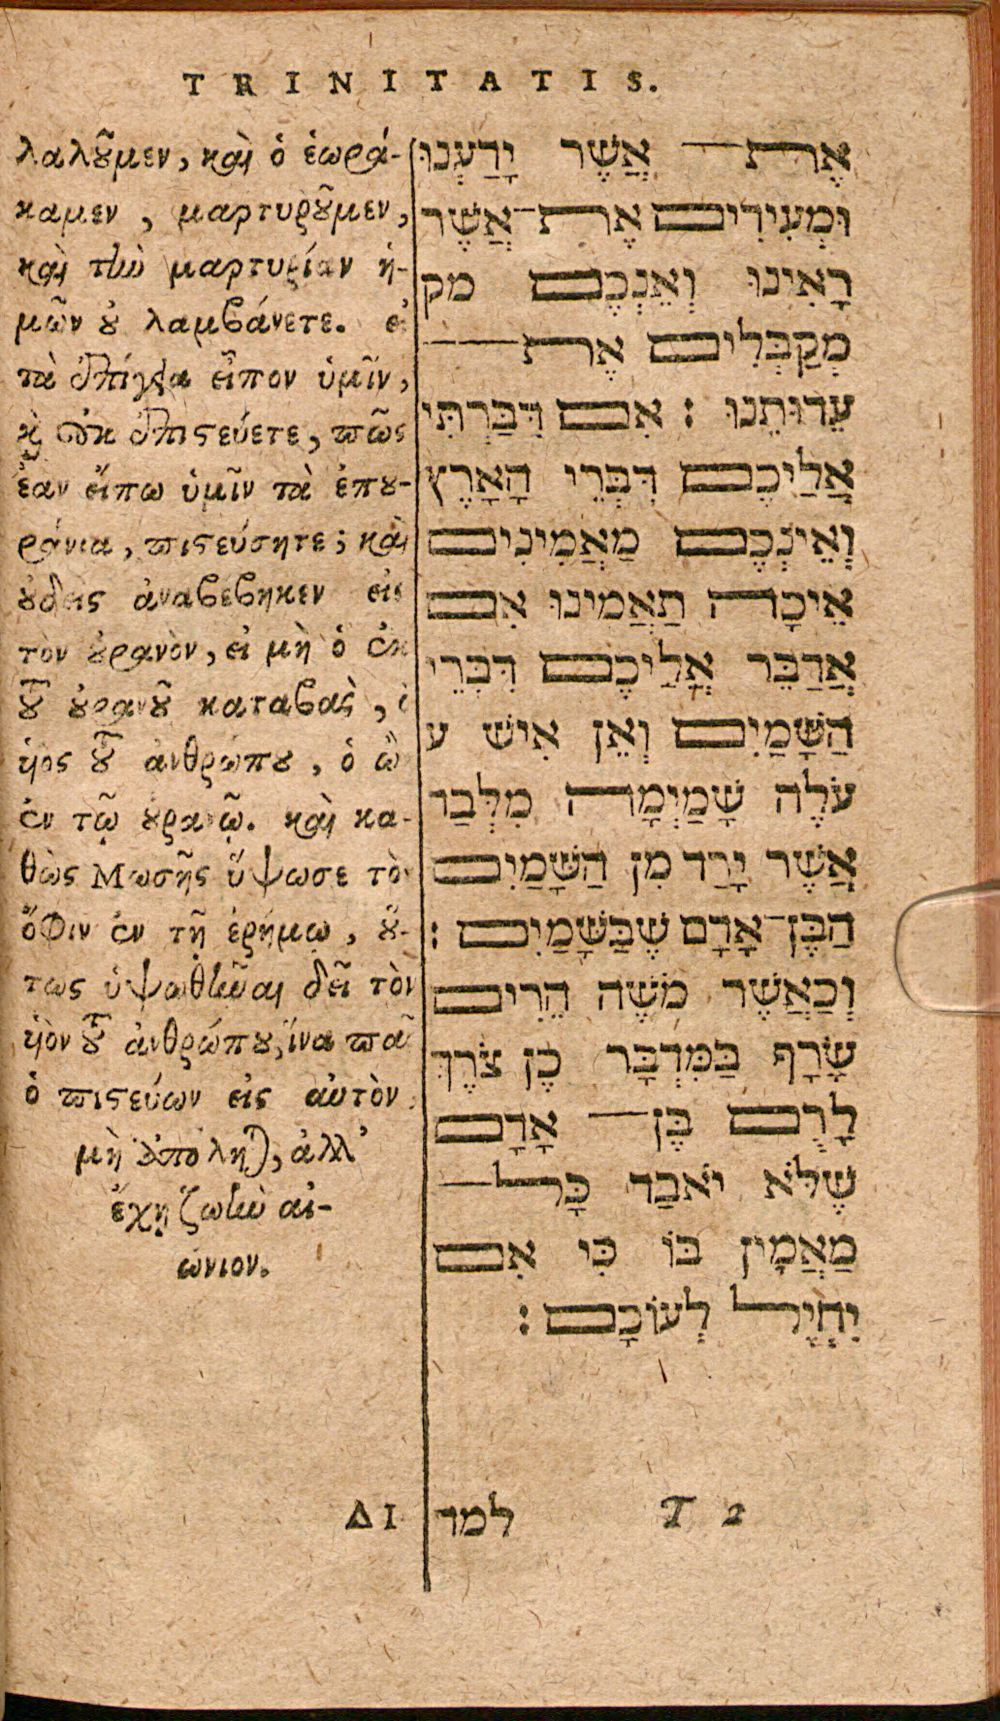 TRINITATIS.
λαλοῦμεν, καὶ ὁ ἑωρά-
καμεν, μαρτυροῦμεν,
καὶ τὴν μαρτυρίαν ἡ-
μῶν οὐ λαμβάνετε. εἰ
τὰ ἐπίγεια εἶπον ὑμῖν,
κ οὐκ ἐπιστεύετε, πῶς
ἐὰν εἴπω ὑμῖν τὰ ἐπου-
ράνια, πιστεύσητε; καὶ
οὐδεὶς ἀναβέβηκεν εἰς
τὸν οὐρανὸν, εἰ μὴ ὁ ἐκ
τοῦ οὐρανοῦ καταβὰς, ὁ
ἡὸς τοῦ ἀνθρώπου, ὁ ὢν
ἐν τῷ οὐρανῷ. καὶ κα-
θὼς Μωσῆς ὕψωσε τὸν
ὄφιν ἐν τῇ ἐρήμῳ, οὕ-
τως ὑψωθῆναι δεῖ τὸν
ἡὸν τοῦ ἀνθρώπου, ἵνα πᾶς
ὁ πιστεύων εἰς αὐτὸν
μὴ ἀπόληται, ἀλλ'
ἔχῃ ζωὴν αἰ-
ώνιον.
ΔΙ
אֶת־ אֲשֶׁר יָדַעְנוּ
וּמְעִידִים אֶת־אֲשֶׁר
רָאִינוּ וְאֵנְכֶם מק
מְקַבְּלִים אֶת־
עֵדוּתֵנוּ : אִם דִּבַּרְתִּי
אֲלֵיכֶם דִּבְרֵי הָאָרֶץ
וְאֵינְכֶם מַאֲמִינִים
אֵיכָה תַאֲמִינוּ אִם
אֲדַבֵּר אֲלֵיכֶם דִּבְרֵי
הַשָּׁמַיִם וְאֵן אִישׁ ע
עֹלֶה שָׁמַיְמָה מִלְּבַד
אֲשֶׁר יָרַד מִן הַשָּׁמַיִם
הַבֶּן־אָדָם שֶׁבַּשָּׁמַיִם :
וְכַאֲשֶׁר מֹשֶׁה הֵרִים
שָׂרָף בַּמִּדְבָּר כֵּן צֹרֶךְ
לָרֻם בֶּן־ אָדָם
שֶׁלֹּא יֹאבַד כָּל־
מַאֲמָין בּוֹ כִּי אִם
יִחְיֶה לְעוֹלָם :
למד
T 2